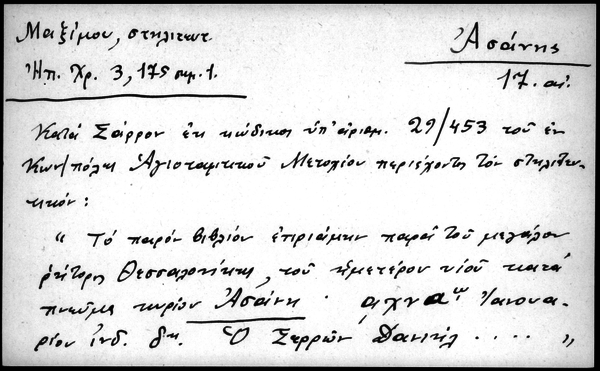 Μαξίμου, στηλιτευτ.
Ἀσάνης
Ἠπ. Χρ. 3, 175 σημ. 1.
17. αἰ.
Κατά Σάρρον ἐκ κώδικος ὑπ' ἀριθμ. 29/453 τοῦ ἐν
Κων/πόλη Ἁγιοταφικοῦ Μετοχίου περιέχοντος τόν στηλιτευ-
τικόν:
" Τό παρόν βιβλίον ἐπριάμην παρά τοῦ μεγάλου
ῥήτορος Θεσσαλονίκης, τοῦ ἡμετέρου υἱοῦ κατά
πνεῦμα κυρίου Ἀσάνη · αχνα ͭͭ Ἰαννουα-
ρίου ἰνδ. δης. Ὁ Σερρῶν Δανιήλ .... "